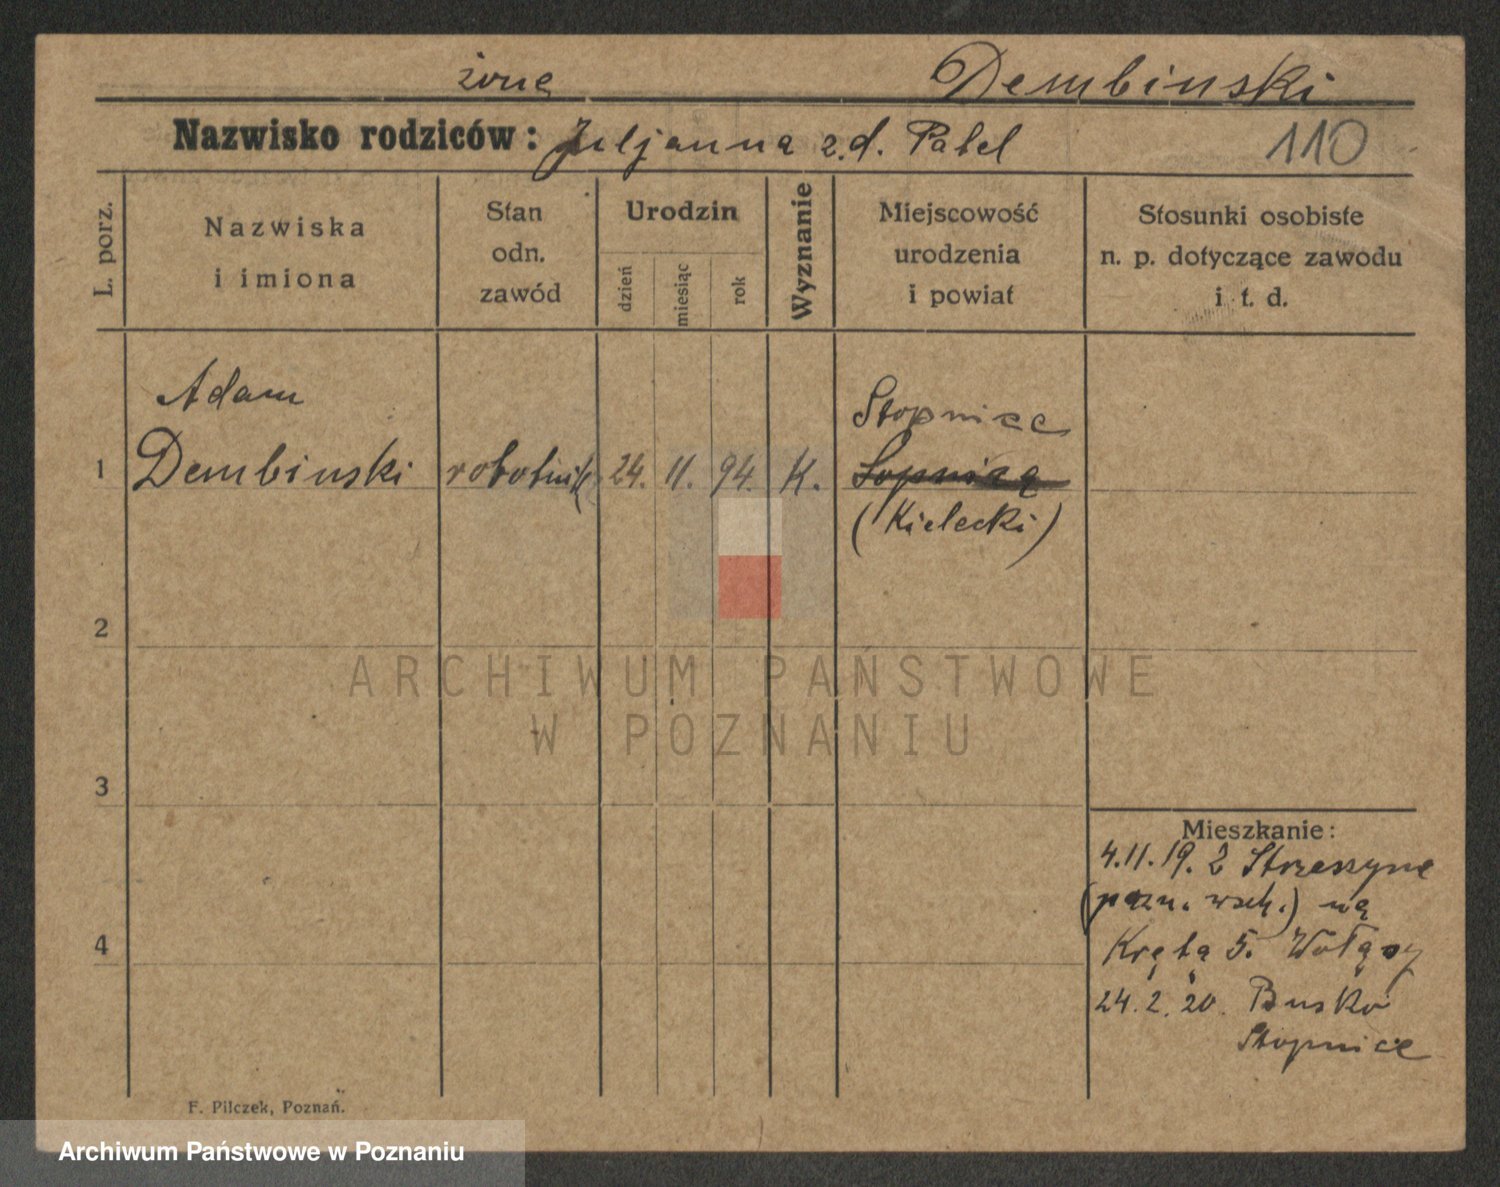 żona Dembinski
Nazwisko rodziców: Juljanna z.d. Patel 110
L. porz.
Nazwiska
i imiona
Stan
odn.
zawód
Urodzin
dzień
miesiąc
rok
Wyznanie
Miejscowość
urodzenia
i powiat
Stosunki osobiste
n. p. dotyczące zawodu
i t. d.
Adam
Stopnice
1 Dembinski robotnik 24. 11. 94. K. Sopnicą
(Kielecki)
2
ARCHIWUM PAŃSTWOWE
W POZNANIU
3
Mieszkanie:
4.11.19. z Strzeszyna
(pozn. wsch.) na
4
Kręta 5. Wołąsy
24.2.20. Busko
Stopnice
F. Pilczek, Poznań.
Archiwum Państwowe w Poznaniu